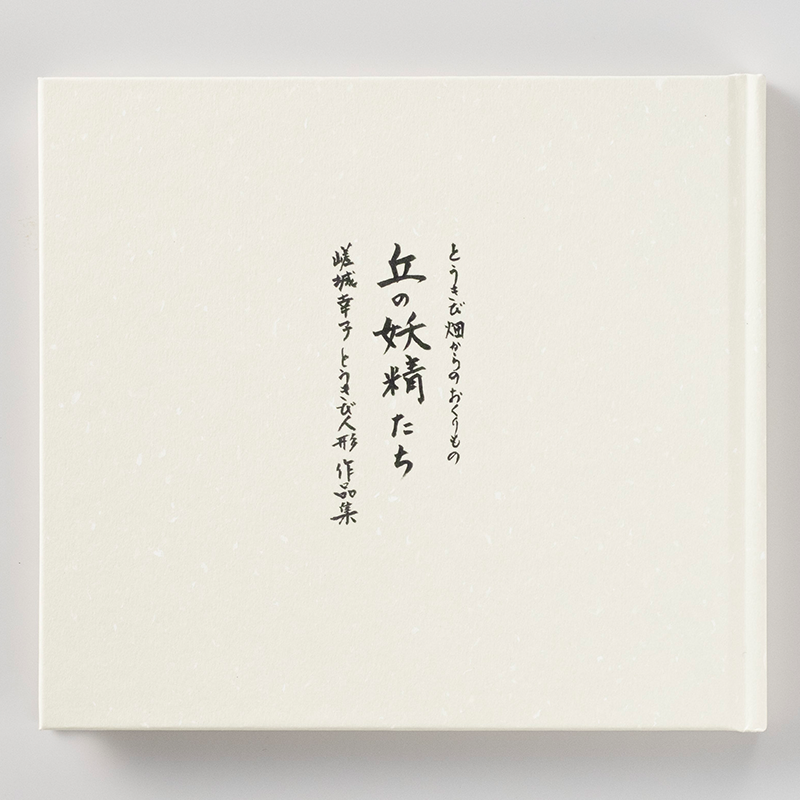 とうきび畑からのおくりもの
丘の妖精たち
嵯城幸子とうきび人形 作品集